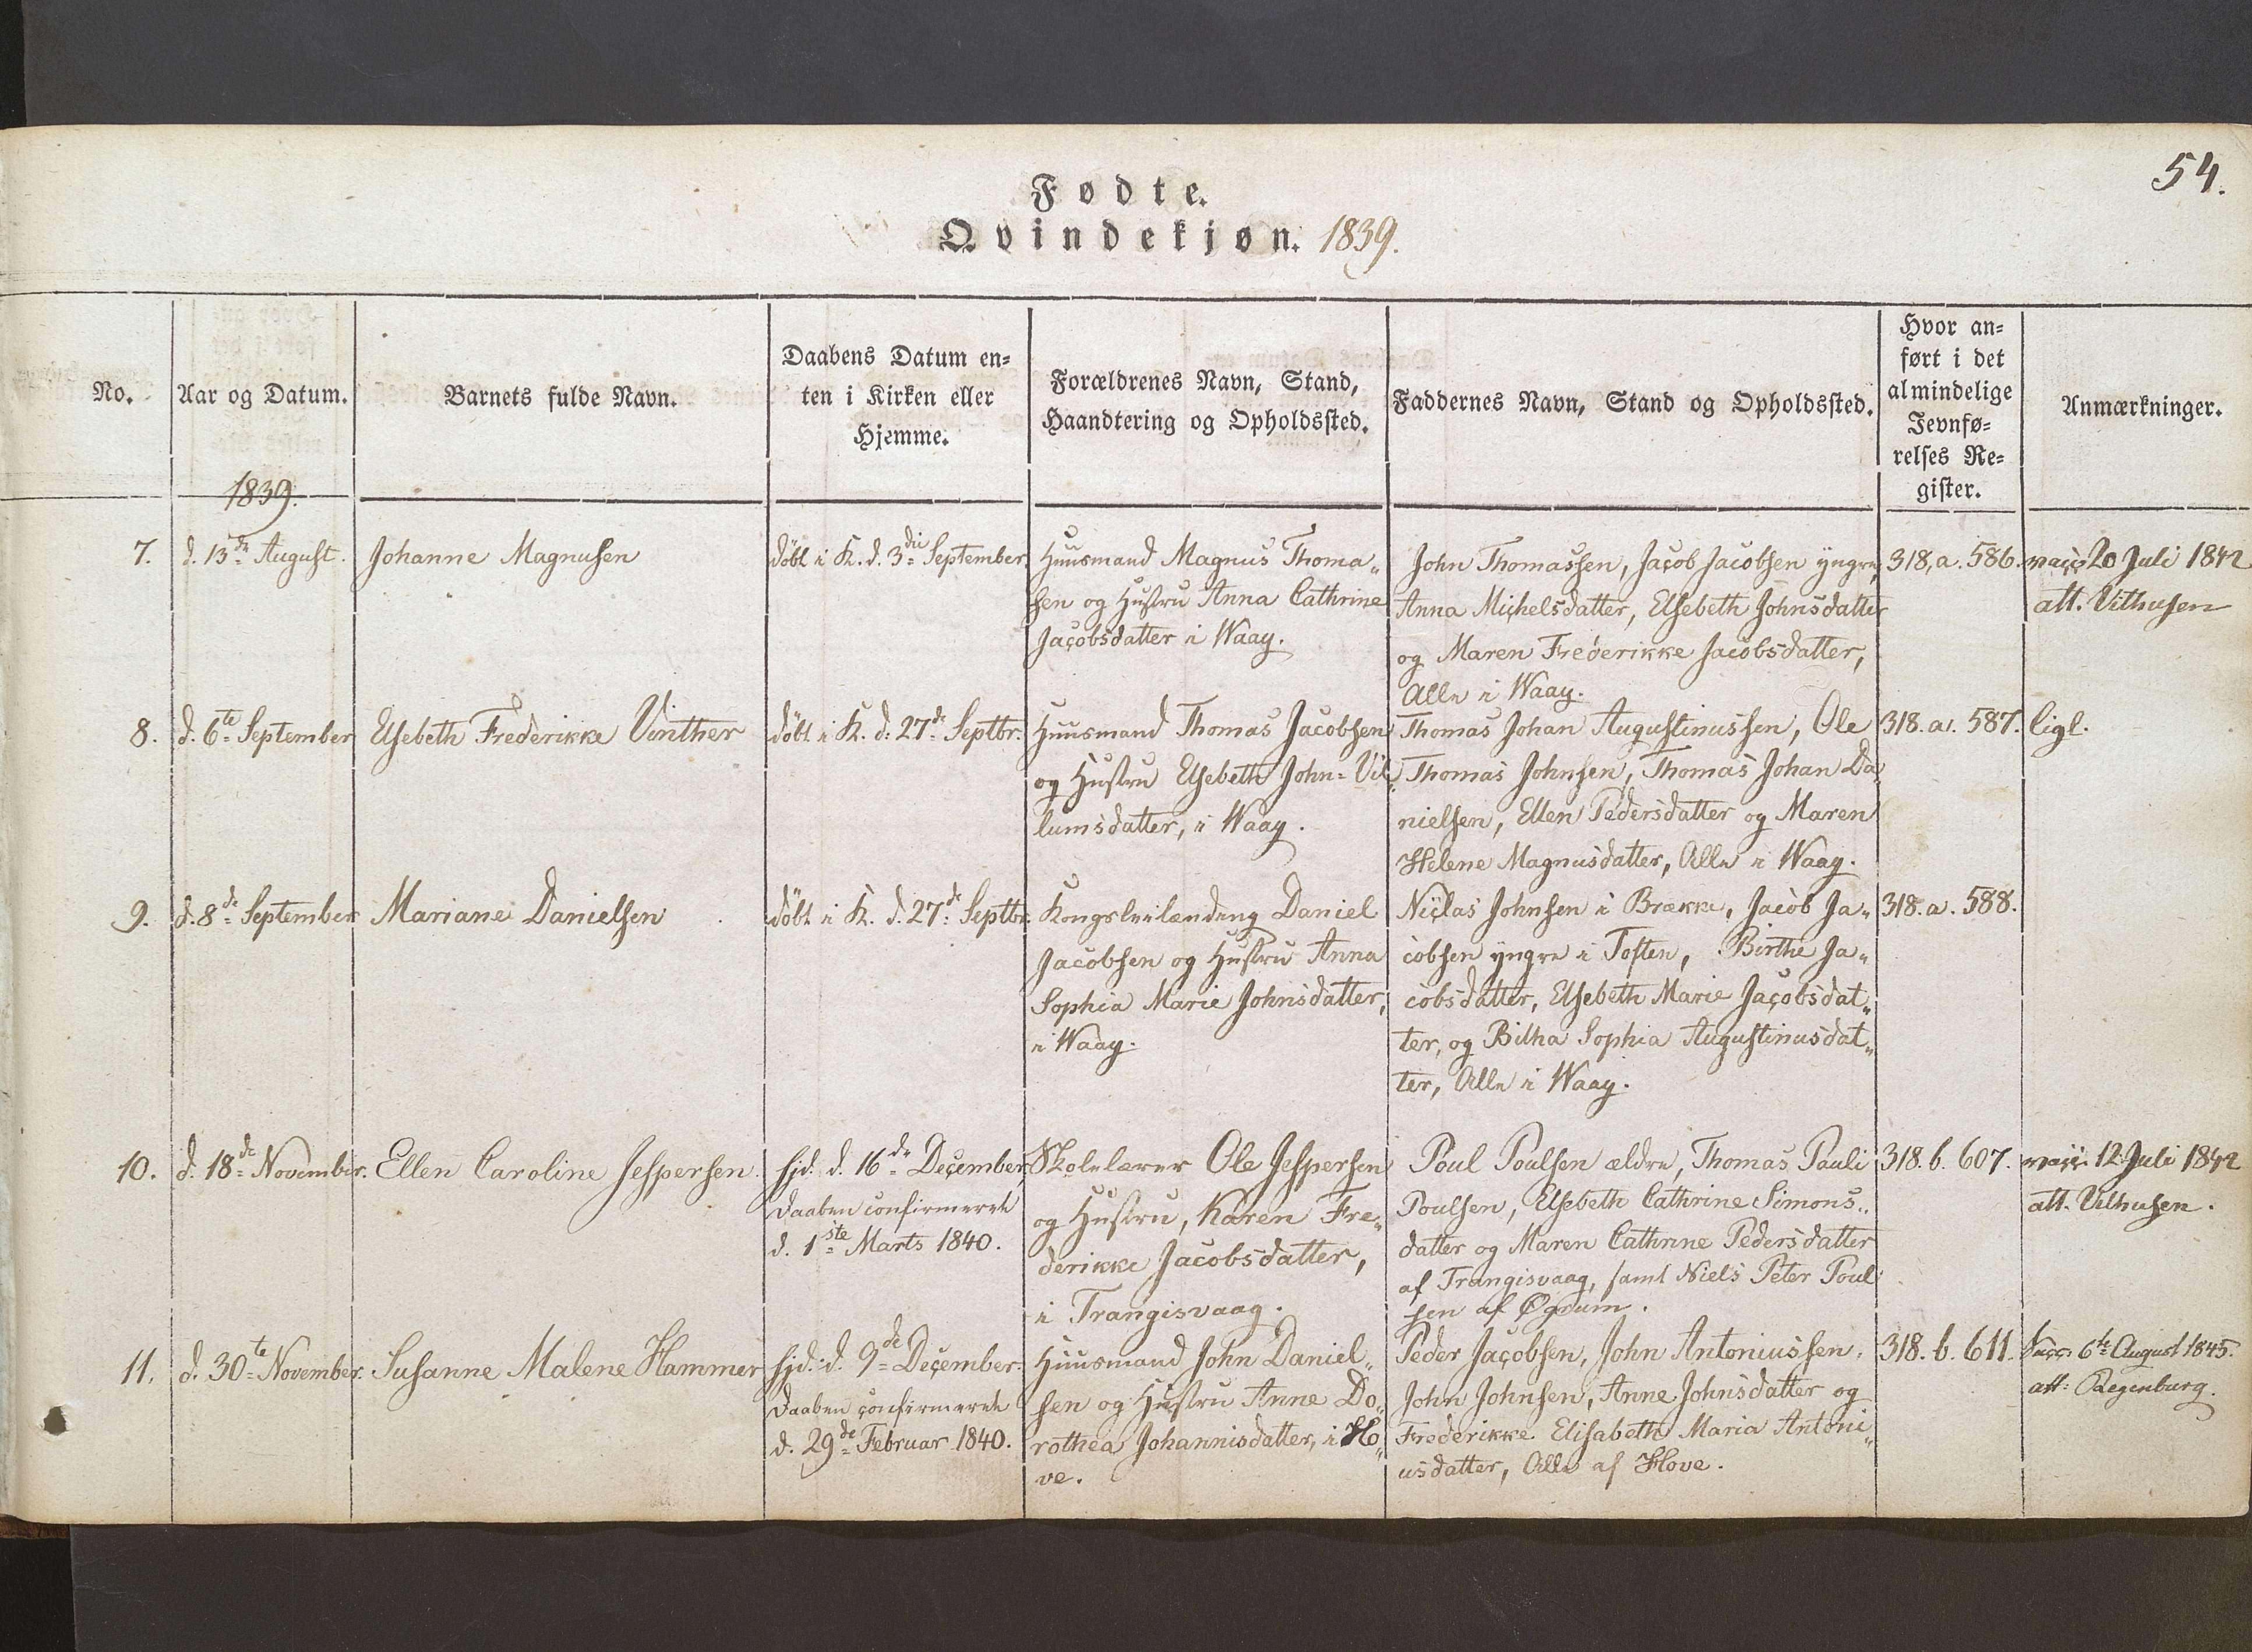 54.
Fødte.
Qvindekjøn. 1839.
No.
Aar og Datum.
1839.
Barnets fulde Navn.
Daabens Datum en=
ten i Kirken eller
Hjemme.
Forældrenes Navn, Stand,
Haandtering og Opholdssted.
Faddernes Navn, Stand og Opholdssted.
Hvor an=
ført i det
almindelige
Jevnfø=
relses Re=
gister.
Anmærkninger.
7.
d. 13de August.
Johanne Magnusen
döbt i K. d. 3die September.
Huusmand Magnus Thoma„
sen og Hustru Anna Cathrine
Jacobsdatter i Waag.
John Thomassen, Jacob Jacobsen yngre,
Anna Michelsdatter, Elsebeth Johnsdatter
og Maren Frederikke Jacobsdatter,
Alle i Waag.
318,a. 586.
vacc. 20 Juli 1842
att. Vithusen
8.
d. 6te September
Elsebeth Frederikke Vinther
döbt i K. d. 27de Septbr.
Huusmand Thomas Jacobsen
og Hustru Elsebeth John= Vil„
lumsdatter, i Waag.
Thomas Johan Augustinussen, Ole
Thomas Johnsen, Thomas Johan Da„
nielsen, Ellen Pedersdatter og Maren
Helene Magnusdatter, Alle i Waag.
318. a. 587.
ligl.
9.
d. 8de September
Mariane Danielsen
döbt i K. d. 27de Septbr.
Kongsleilænding Daniel
Jacobsen og Hustru Anna
Sophia Marie Johnsdatter,
i Waag.
Niclas Johnsen i Brække, Jacob Ja„
cobsen yngre i Toften, Birthe Ja„
cobsdatter, Elsebeth Marie Jacobsdat„
ter, og Bitha Sophia Augustinusdat„
ter, Alle i Waag.
318. a. 588.
10.
d. 18de November.
Ellen Caroline Jespersen.
hjd. d. 16de December,
Daaben confirmeret
d. 1ste Marts 1840.
Skolelærer Ole Jespersen
og Hustru, Karen Fre„
derikke Jacobsdatter,
i Trangisvaag.
Poul Poulsen ældre, Thomas Pauli
Poulsen, Elsebeth Cathrine Simons„
datter og Maren Cathrine Pedersdatter
af Trangisvaag, samt Niels Peter Poul
sen af Øgrum.
318. b. 607.
vacc. 12 Juli 1842
att. Vithusen.
11.
d. 30te November.
Susanne Malene Hammer
hjd. d. 9de December.
Daaben confirmeret
d. 29de Februar 1840.
Huusmand John Daniel„
sen og Hustru Anne Do„
rothea Johannisdatter, i Ho„
ve.
Peder Jacobsen, John Antoniussen,
John Johnsen, Anne Johnsdatter og
Frederikke Elisabeth Maria Antoni„
usdatter, Alle af Hove.
318. b. 611.
vacc. 6te August 1845.
att: Regenburg.